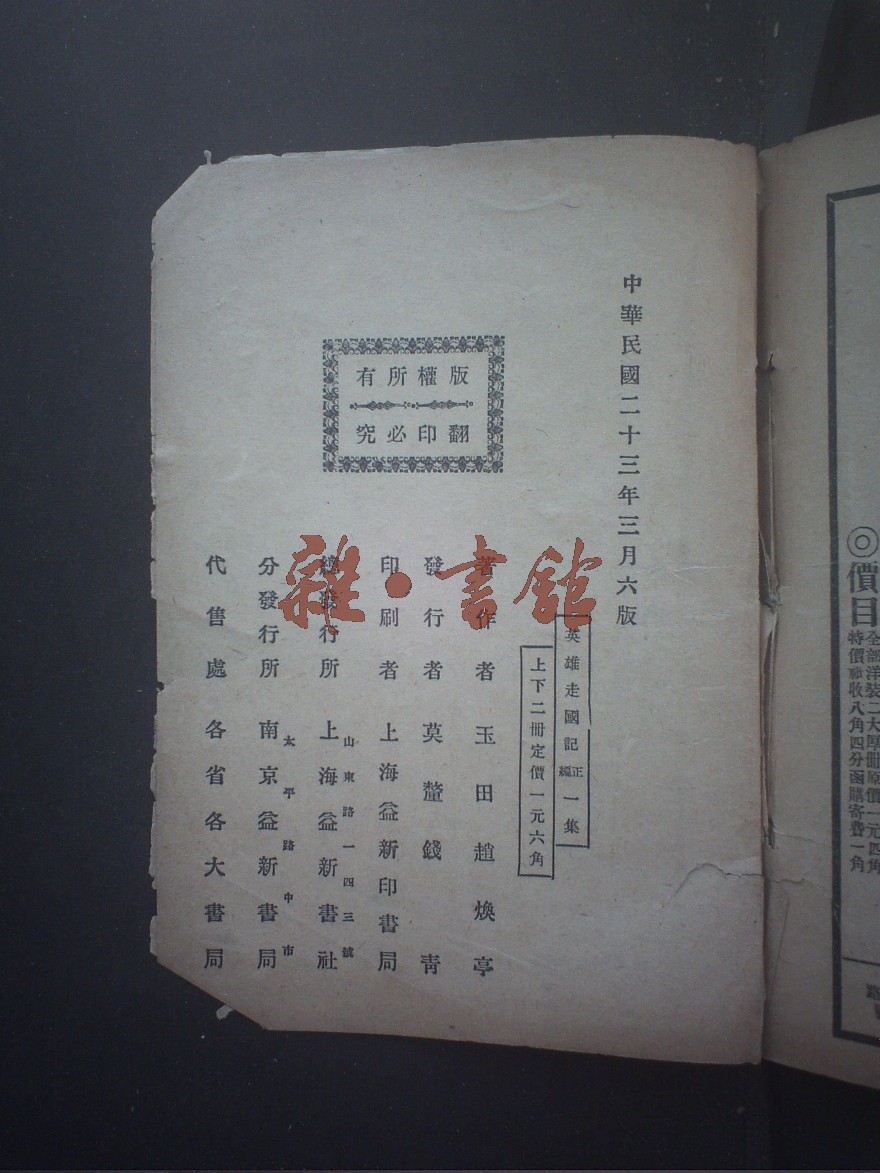 ◎價目
全部洋裝二大厚冊原價一元四角
特價祗收八角四分函購寄費一角
中華民國二十三年三月六版
英雄走國記正編一集
上下二冊定價一元六角
版權所有
翻印必究
著作者 玉田趙煥亭
發行者 莫釐錢青
印刷者 上海益新印書局
山東路一四三號
總發行所 上海益新書社
太平路中市
分發行所 南京益新書局
代售處 各省各大書局
雜·書館